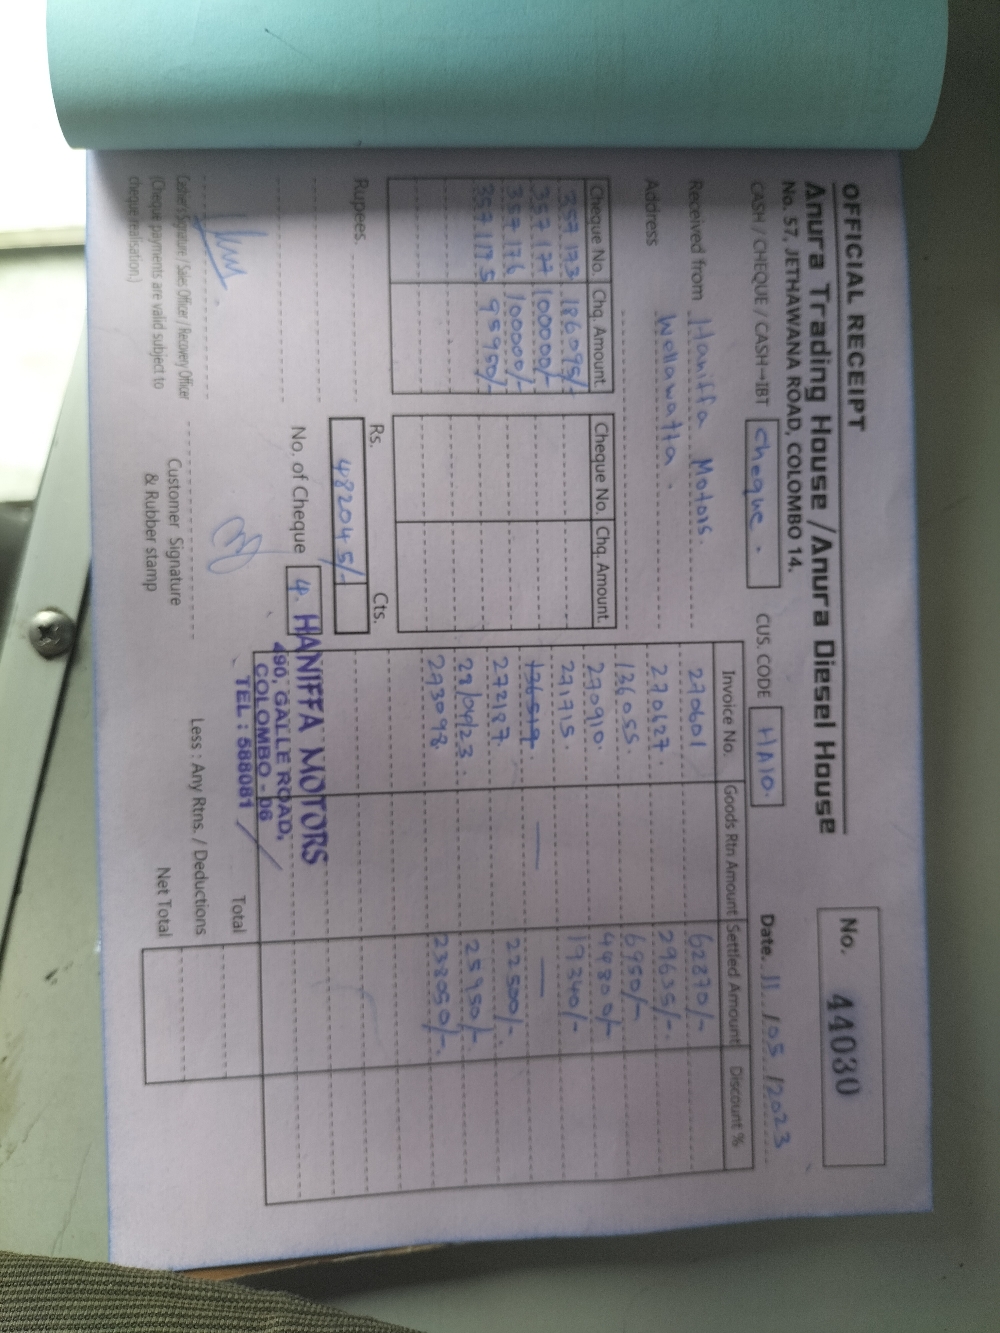 OFFICIAL RECEIPT
No. 44030
Anura Trading House /Anura Diesel House
No. 57, JETHAWANA ROAD, COLOMBO 14.
CASH / CHEQUE / CASH→IBT Cheque. CUS. CODE HA10. Date. 11 / 05 / 2023
Received from Haniffa Motors.
Address Wellawatta.
Cheque No. Chq. Amount
357173 186095/-
357177 100000/-
357176 100000/-
357175 95950/-
Cheque No. Chq. Amount
Invoice No. Goods Rtn Amount Settled Amount Discount %
270601 62870/-
270627. 29635/-
126055. 6950/-
270910. 44800/-
271715. 19340/-
136519 — —
272187. 22500/-
28/04/23. 25950/-
273098. 23805/-
Rupees
Rs. Cts.
482045/-
No. of Cheque 4.
HANIFFA MOTORS
490, GALLE ROAD,
COLOMBO - 06
TEL : 588081
Total
Less : Any Rtns. / Deductions
Net Total
Cashier's Signature / Sales Officer / Recovery Officer
(Cheque payments are valid subject to
cheque realisation.)
Customer Signature
& Rubber stamp